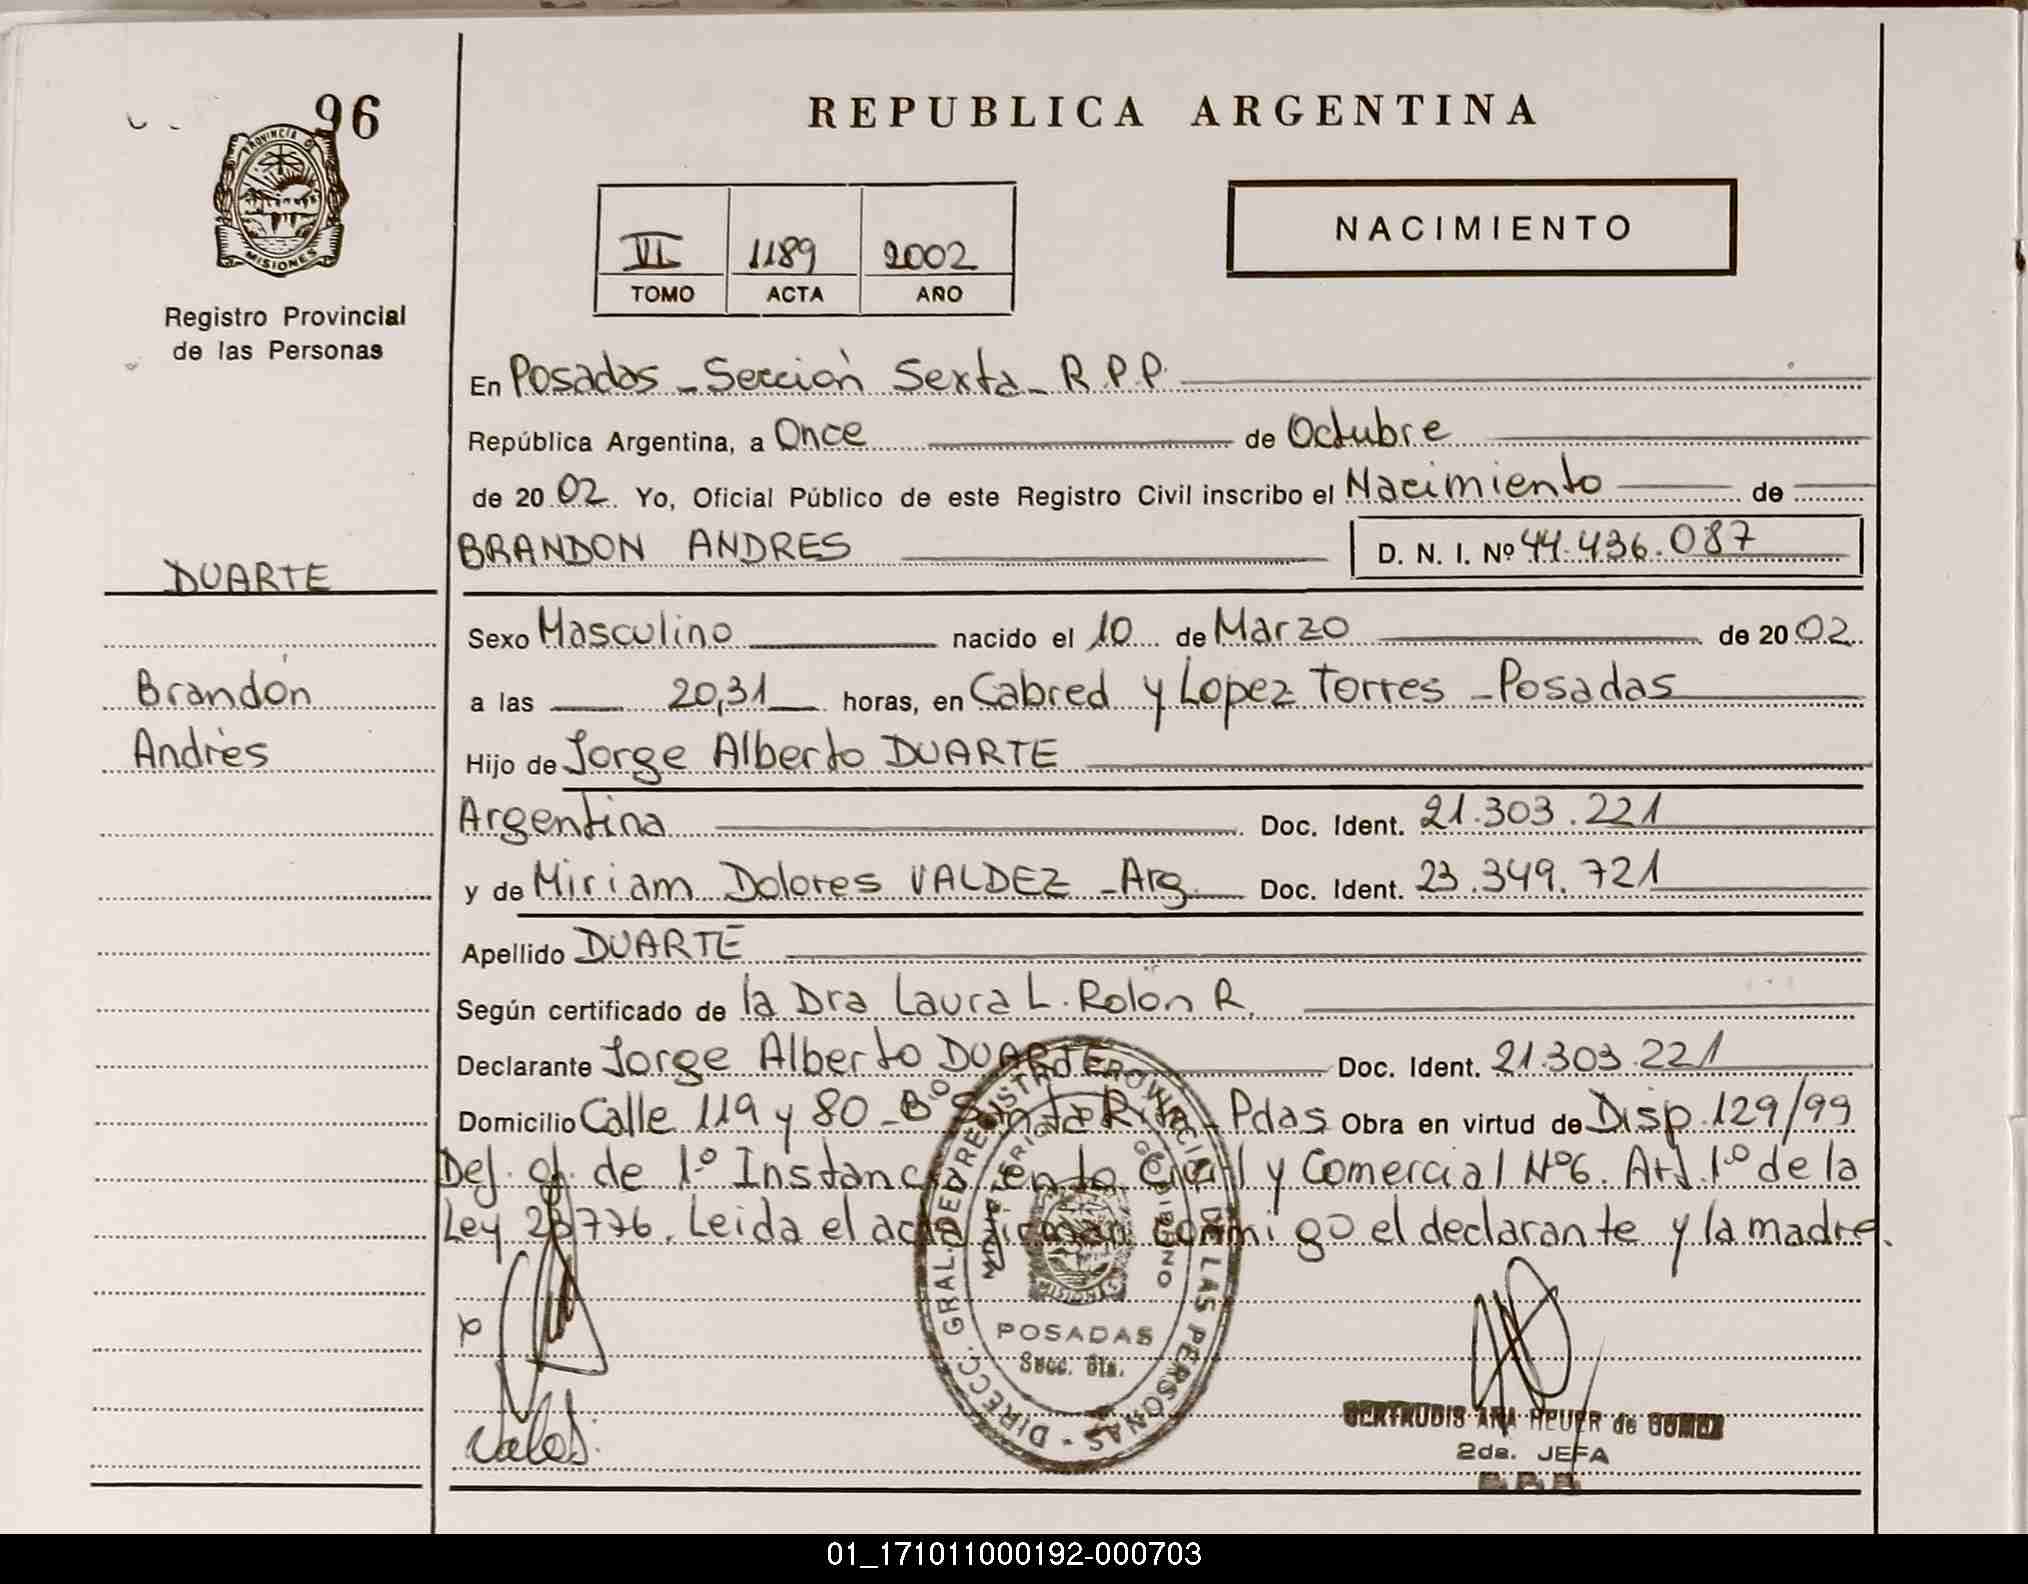 96
PROVINCIA DE
MISIONES
Registro Provincial
de las Personas
REPUBLICA ARGENTINA
VI 1189 2002
TOMO ACTA AÑO
NACIMIENTO
En Posadas - Sección Sexta - R.P.P.
República Argentina, a Once de Octubre
de 2002. Yo, Oficial Público de este Registro Civil inscribo el Nacimiento de
BRANDON ANDRES D. N. I. Nº 44.436.087
DUARTE
Brandon
Andrés
Sexo Masculino nacido el 10 de Marzo de 2002
a las 20,31 horas, en Cabred y Lopez Torres - Posadas
Hijo de Jorge Alberto DUARTE
Argentina Doc. Ident. 21.303.221
y de Miriam Dolores VALDEZ - Arg. Doc. Ident. 23.349.721
Apellido DUARTE
Según certificado de la Dra Laura L. Rolón R.
Declarante Jorge Alberto DUARTE Doc. Ident. 21.303.221
Domicilio Calle 119 y 80 - Bº Santa Rita - Pdas Obra en virtud de Disp. 129/99
Def. Of. de 1º Instancia en lo Civil y Comercial Nº6. Art. 1º de la
Ley 776. Leida el acta firman conmigo el declarante y la madre.
DIRECC. GRAL. DEL REGISTRO PROVINCIAL DE LAS PERSONAS
MINISTERIO GOBIERNO
POSADAS
Secc. 6ta.
GERTRUDIS ANA HEUER de GOMEZ
2da. JEFA
R.P.P.
01_171011000192-000703